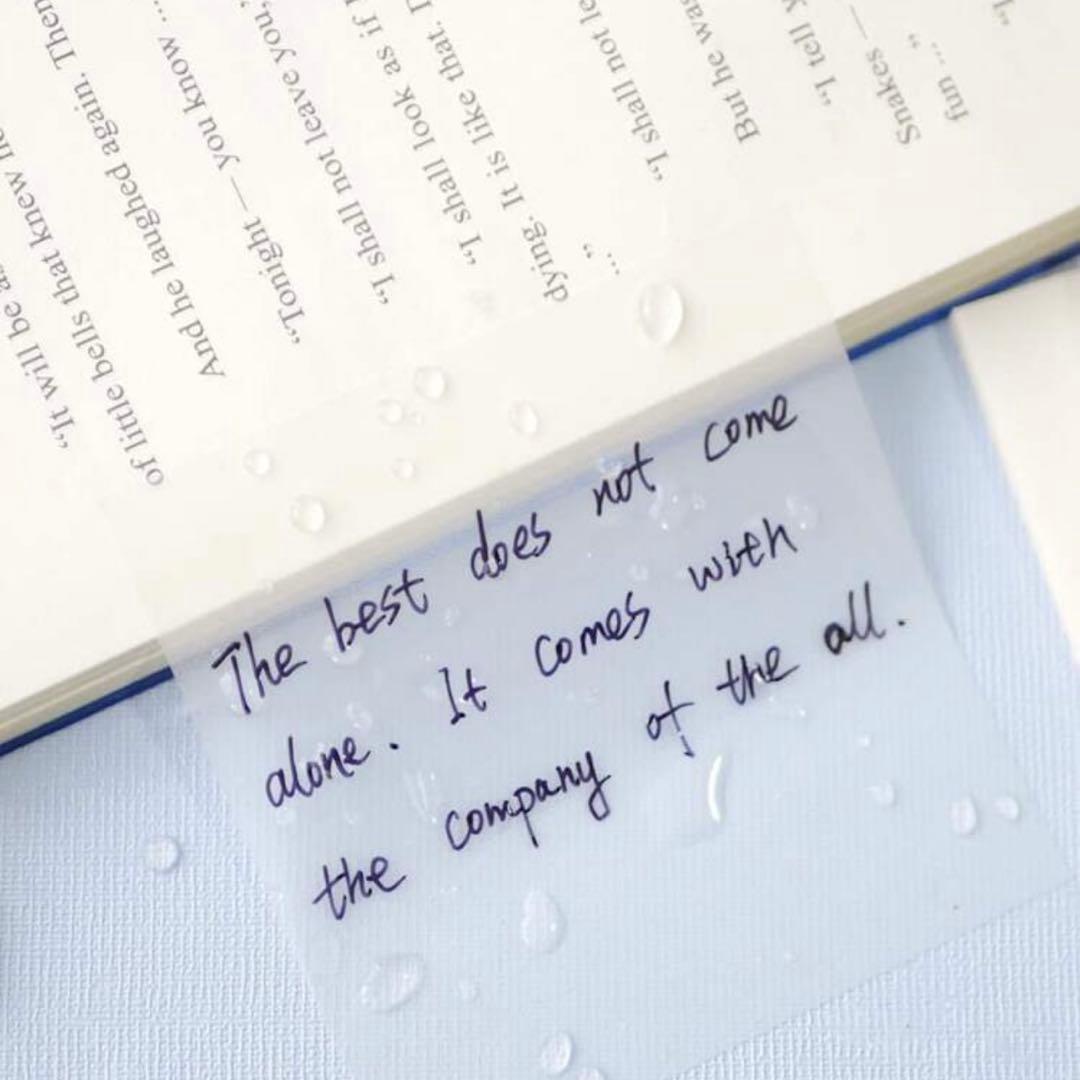 “It will be as
of little bells that knew
And he laughed again. Then
“Tonight — you know …
“I shall not leave you,”
“I shall look as if
dying. It is like that.
…”
“I shall not
But he was
“I tell
Snakes —
fun …”
“I
The best does not come
alone. It comes with
the company of the all.